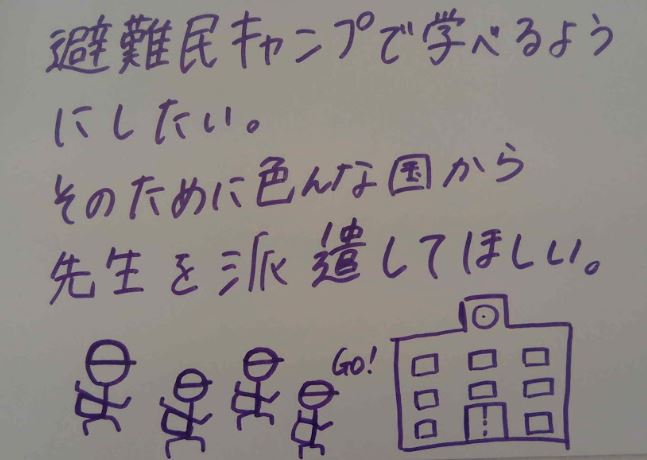 避難民キャンプで学べるよう
にしたい。
そのために色んな国から
先生を派遣してほしい。
GO!